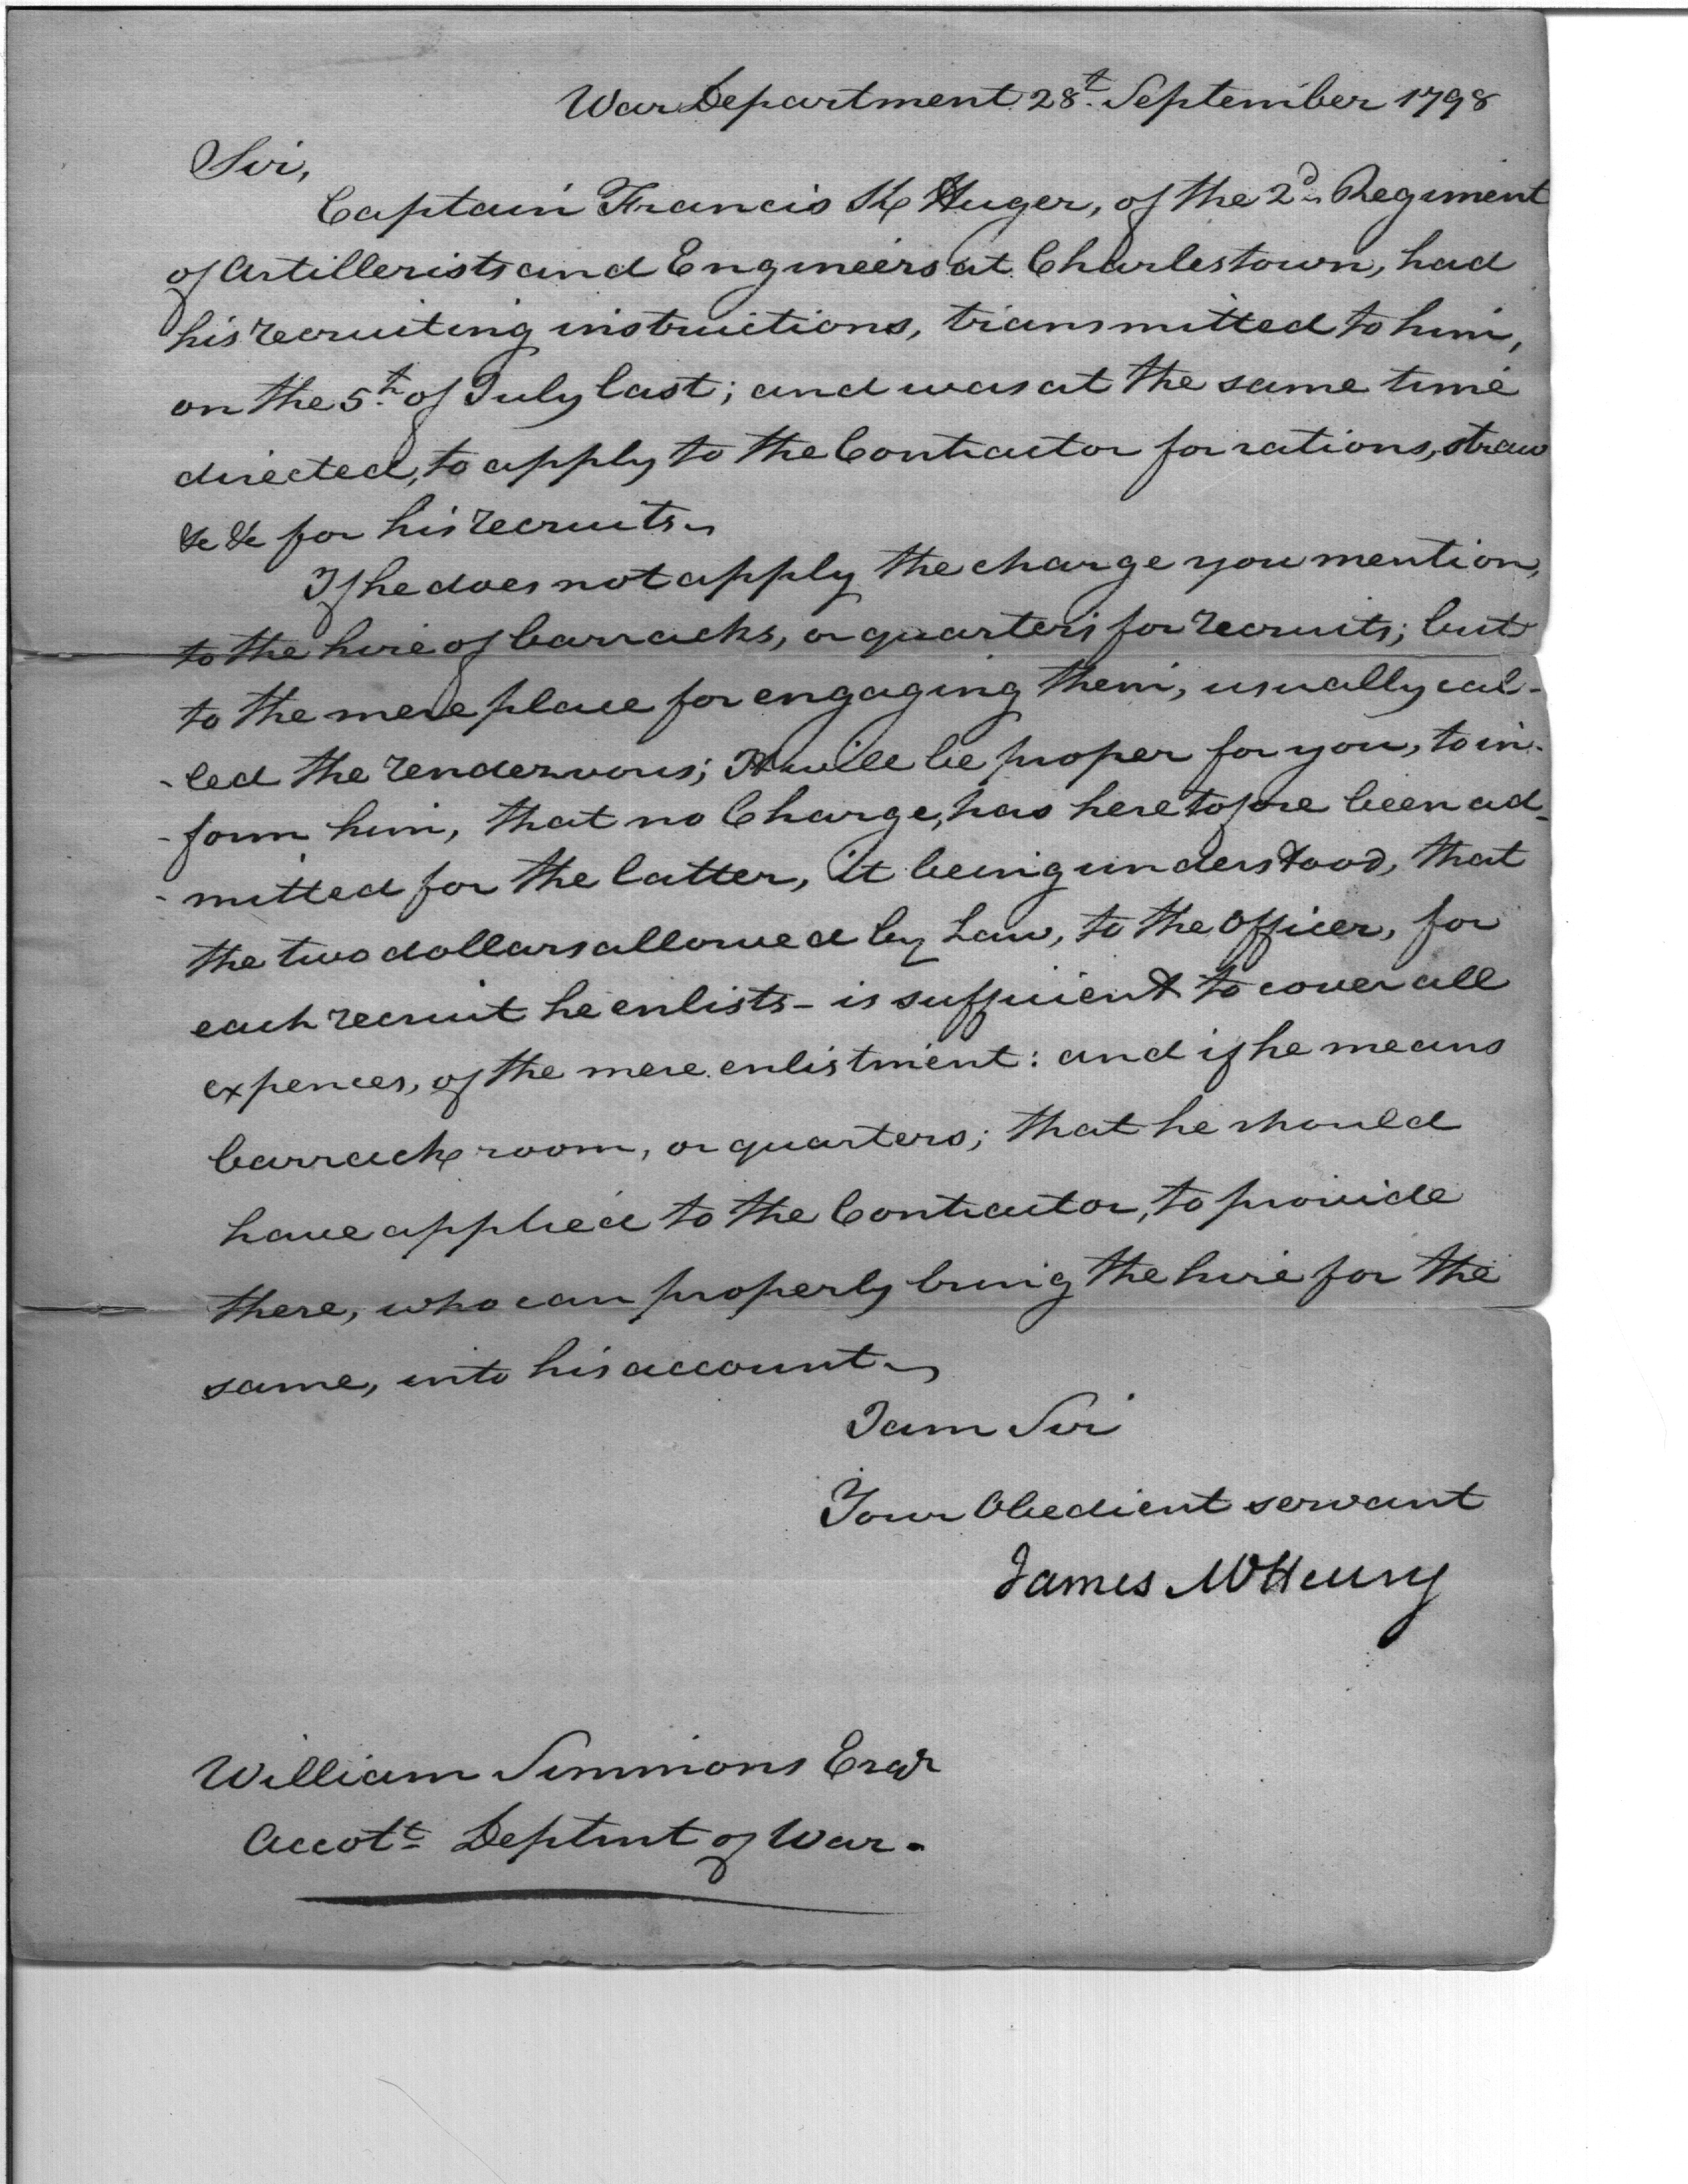 War Department 28th September 1798
Sir,
Captain Francis K Huger, of the 2d Regiment
of Artillerists and Engineers at Charlestown, had
his recruiting instructions, transmitted to him,
on the 5th of July last; and was at the same time
directed, to apply to the Contractor for rations, straw
&c &c for his recruits.
If he does not apply the charge you mention,
to the hire of barracks, or quarters for recruits; but
to the mere place for engaging them, usually cal-
-led the rendezvous; It will be proper for you, to in-
-form him, that no Charge, has heretofore been ad-
-mitted for the latter, it being understood, that
the two dollars allowed by Law, to the Officer, for
each recruit he enlists - is sufficient to cover all
expences, of the mere enlistment: and if he means
barrack room, or quarters; that he should
have applied to the Contractor, to provide
there, who can properly bring the hire for the
same, into his account.
I am Sir
Your Obedient servant
James McHenry
William Simmons Esqr
Accott Deptmt of War.